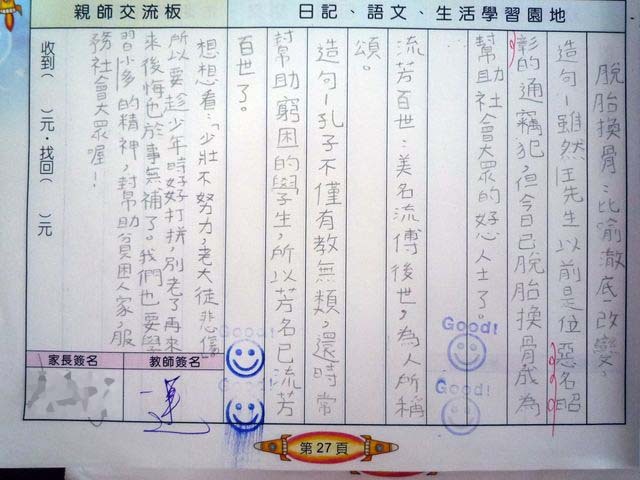 日記、語文、生活學習園地
脫胎換骨：比喻澈底改變。
造句－雖然汪先生以前是位惡名昭
彰的通竊犯，但今日已脫胎換骨成為
幫助社會大眾的好心人士了。
Good!
Good!
流芳百世：美名流傳後世，為人所稱
頌。
造句－孔子不僅有教無類，還時常
幫助窮困的學生，所以芳名已流芳
百世了。
Good!
Good!
親師交流板
想想看：「少壯不努力，老大徒悲傷」
所以要趁少年時好好打拼，別老了再來
來後悔也於事無補了。我們也要學
習小多的精神，幫助貧困人家，服
務社會大眾喔！
收到（　）元．找回（　）元
教師簽名
家長簽名
第27頁